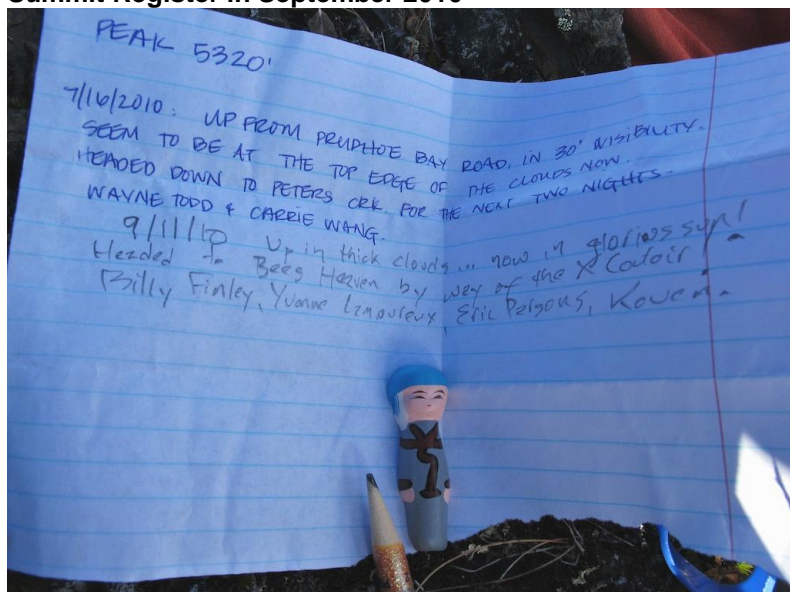 Summit Register in September 2010
PEAK 5320'
7/16/2010: UP FROM PRUDHOE BAY ROAD, IN 30' VISIBILITY.
SEEM TO BE AT THE TOP EDGE OF THE CLOUDS NOW.
HEADED DOWN TO PETERS CRK. FOR THE NEXT TWO NIGHTS.
WAYNE TODD & CARRIE WANG.
9/11/10 Up in thick clouds... now in glorios sun!
Headed to Bees Heaven by way of the X Coloir!
Billy Finley, Yvonne Lamoureux, Eric Parsons,